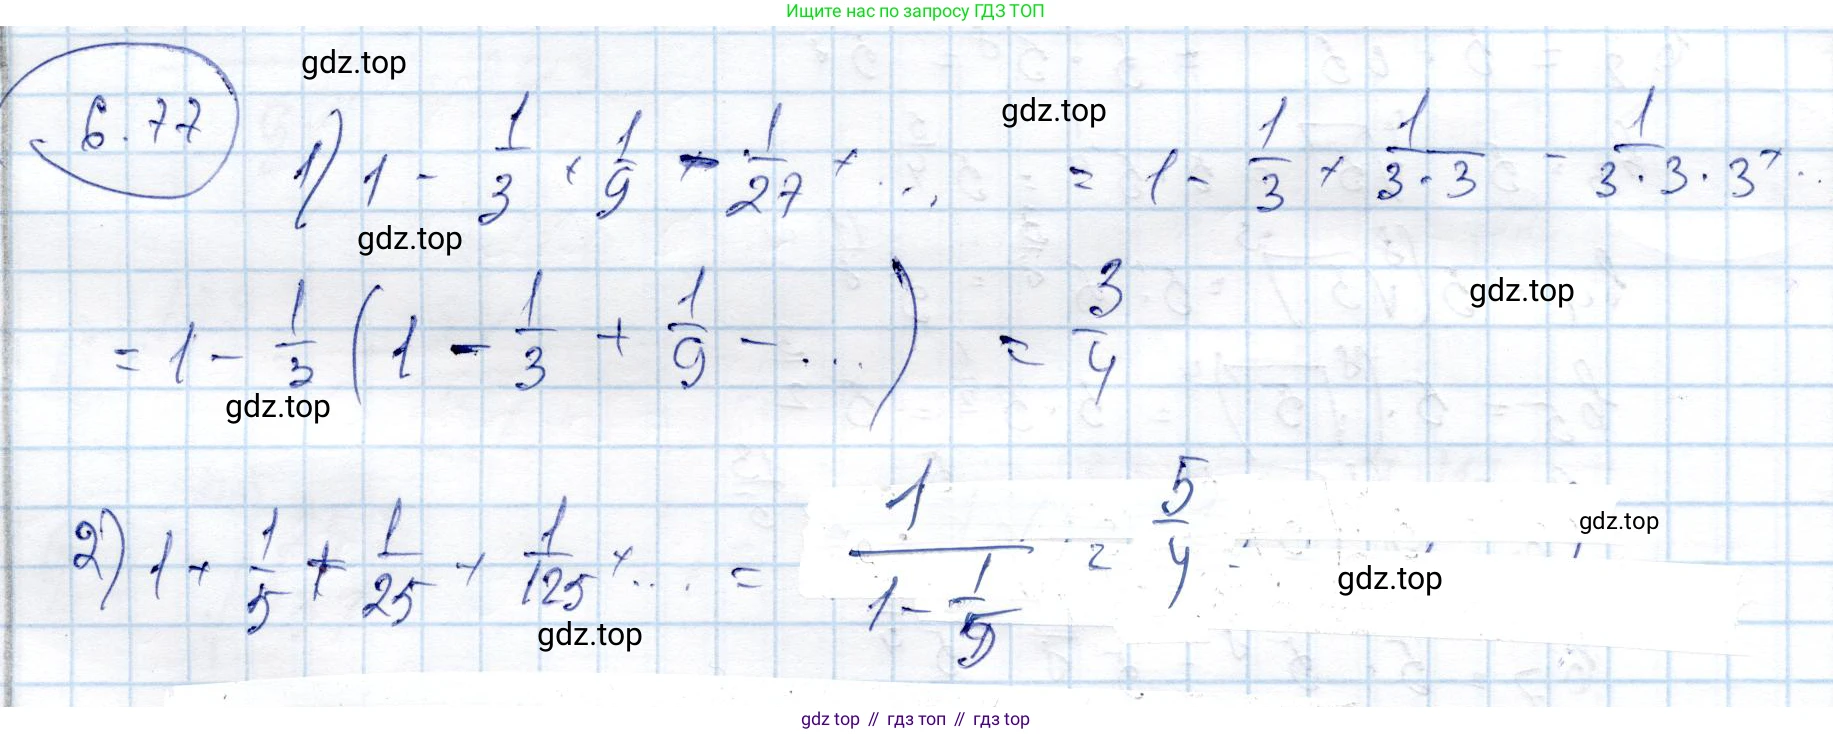 Ищите нас по запросу ГДЗ ТОП
gdz.top
6.77
gdz.top
1) 1 - 1/3 + 1/9 - 1/27 + ... = 1 - 1/3 + 1/(3·3) - 1/(3·3·3) + ...
gdz.top
gdz.top
= 1 - 1/3 (1 - 1/3 + 1/9 - ...) = 3/4
gdz.top
gdz.top
2) 1 + 1/5 + 1/25 + 1/125 + ... = 1/(1 - 1/5) = 5/4
gdz.top
gdz.top
gdz top // гдз топ // гдз top